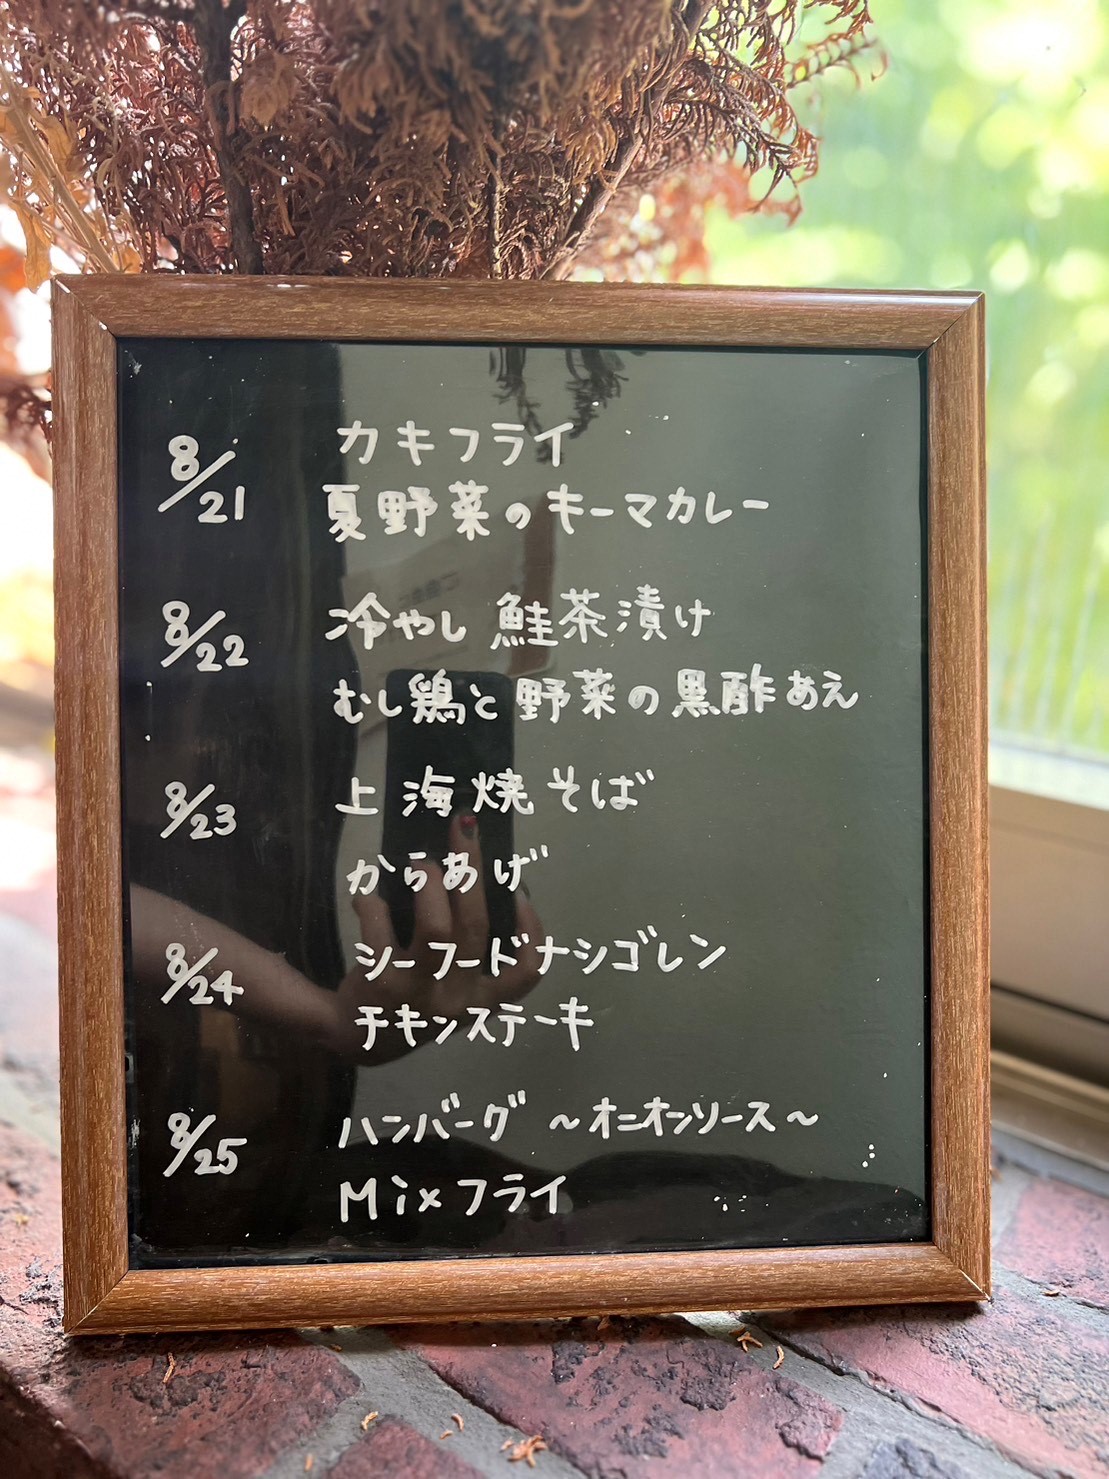 8/21 カキフライ
夏野菜のキーマカレー
8/22 冷やし 鮭茶漬け
むし鶏と野菜の黒酢あえ
8/23 上海焼そば
からあげ
8/24 シーフードナシゴレン
チキンステーキ
8/25 ハンバーグ ～オニオンソース～
Mixフライ